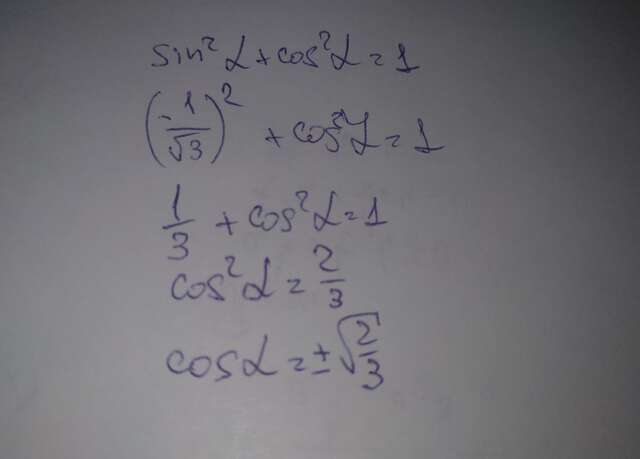 sin²α+cos²α=1
(-1/√3)² + cos²α=1
1/3 + cos²α=1
cos²α=2/3
cosα=±√(2/3)